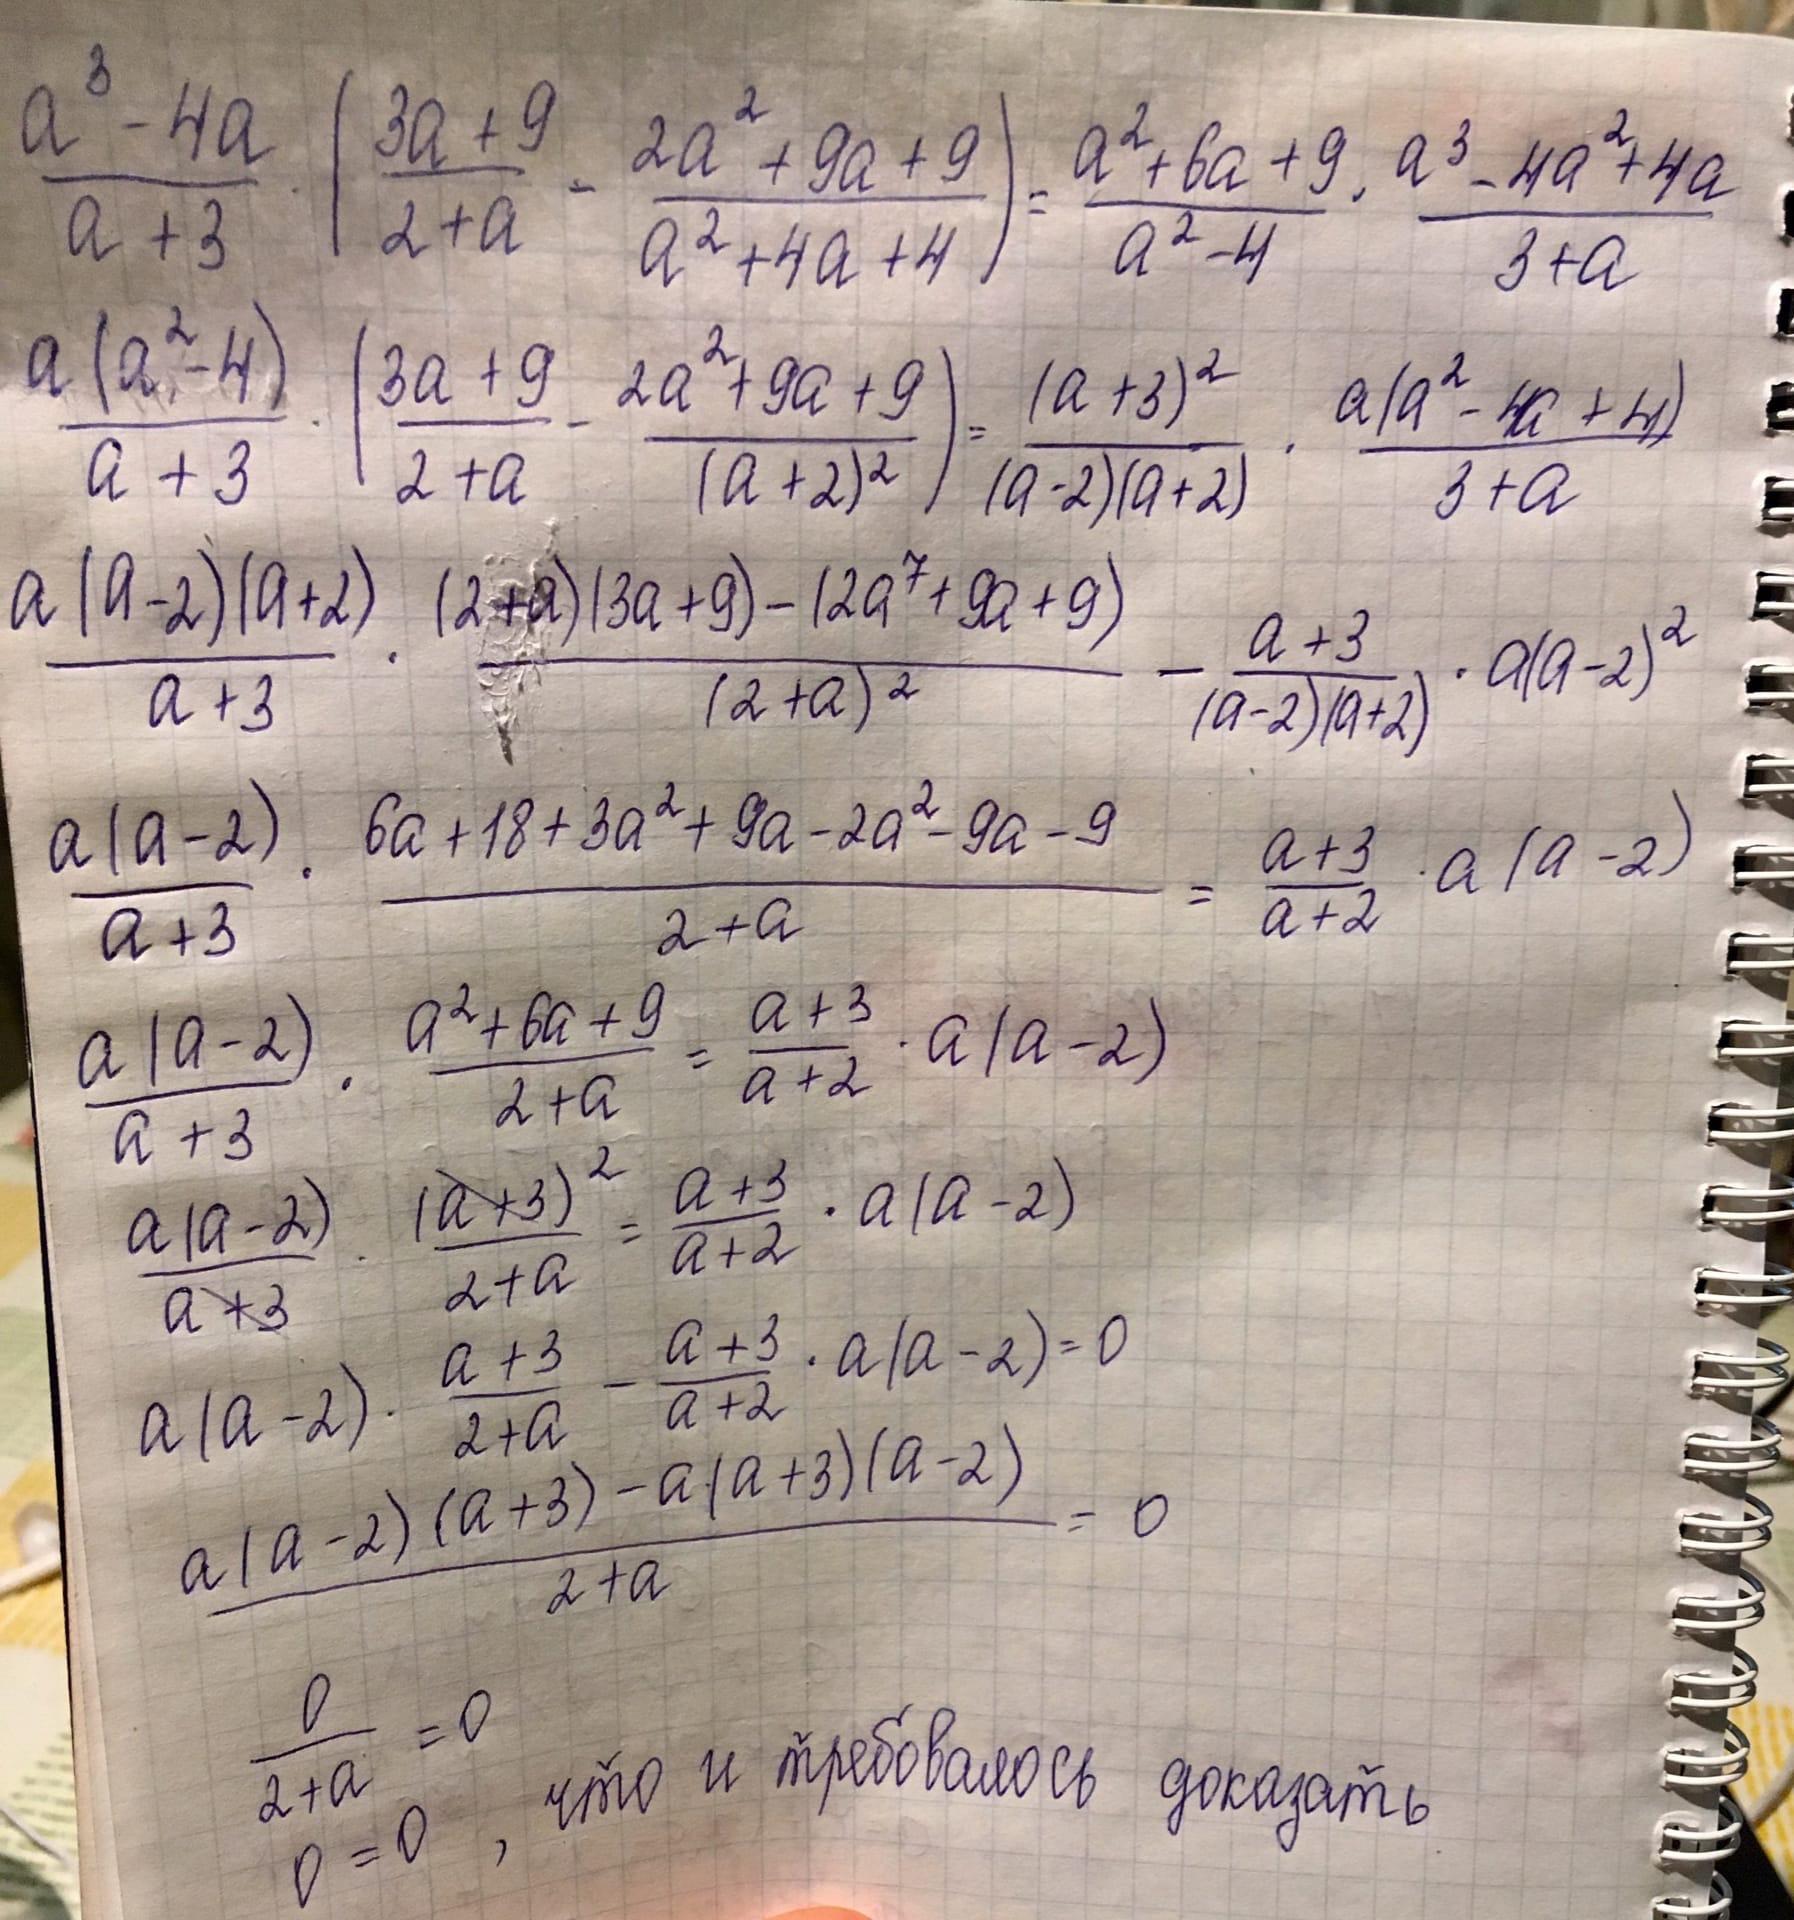 (a³ - 4a)/(a + 3) · ((3a + 9)/(2 + a) - (2a² + 9a + 9)/(a² + 4a + 4)) = (a² + 6a + 9)/(a² - 4) · (a³ - 4a² + 4a)/(3 + a)
(a(a² - 4))/(a + 3) · ((3a + 9)/(2 + a) - (2a² + 9a + 9)/((a + 2)²)) = ((a + 3)²)/((a - 2)(a + 2)) · (a(a² - 4a + 4))/(3 + a)
(a(a - 2)(a + 2))/(a + 3) · ((2 + a)(3a + 9) - (2a⁷ + 9a + 9))/((2 + a)²) - (a + 3)/((a - 2)(a + 2)) · a(a - 2)²
(a(a - 2))/(a + 3) · (6a + 18 + 3a² + 9a - 2a² - 9a - 9)/(2 + a) = (a + 3)/(a + 2) · a(a - 2)
(a(a - 2))/(a + 3) · (a² + 6a + 9)/(2 + a) = (a + 3)/(a + 2) · a(a - 2)
(a(a - 2))/(a + 3) · ((a + 3)²)/(2 + a) = (a + 3)/(a + 2) · a(a - 2)
a(a - 2) · (a + 3)/(2 + a) - (a + 3)/(a + 2) · a(a - 2) = 0
(a(a - 2)(a + 3) - a(a + 3)(a - 2))/(2 + a) = 0
0/(2 + a) = 0
0 = 0, что и требовалось доказать